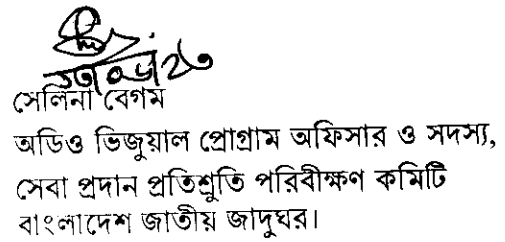 সেলিনা বেগম
অডিও ভিজুয়াল প্রোগ্রাম অফিসার ও সদস্য,
সেবা প্রদান প্রতিশ্রুতি পরিবীক্ষণ কমিটি
বাংলাদেশ জাতীয় জাদুঘর।